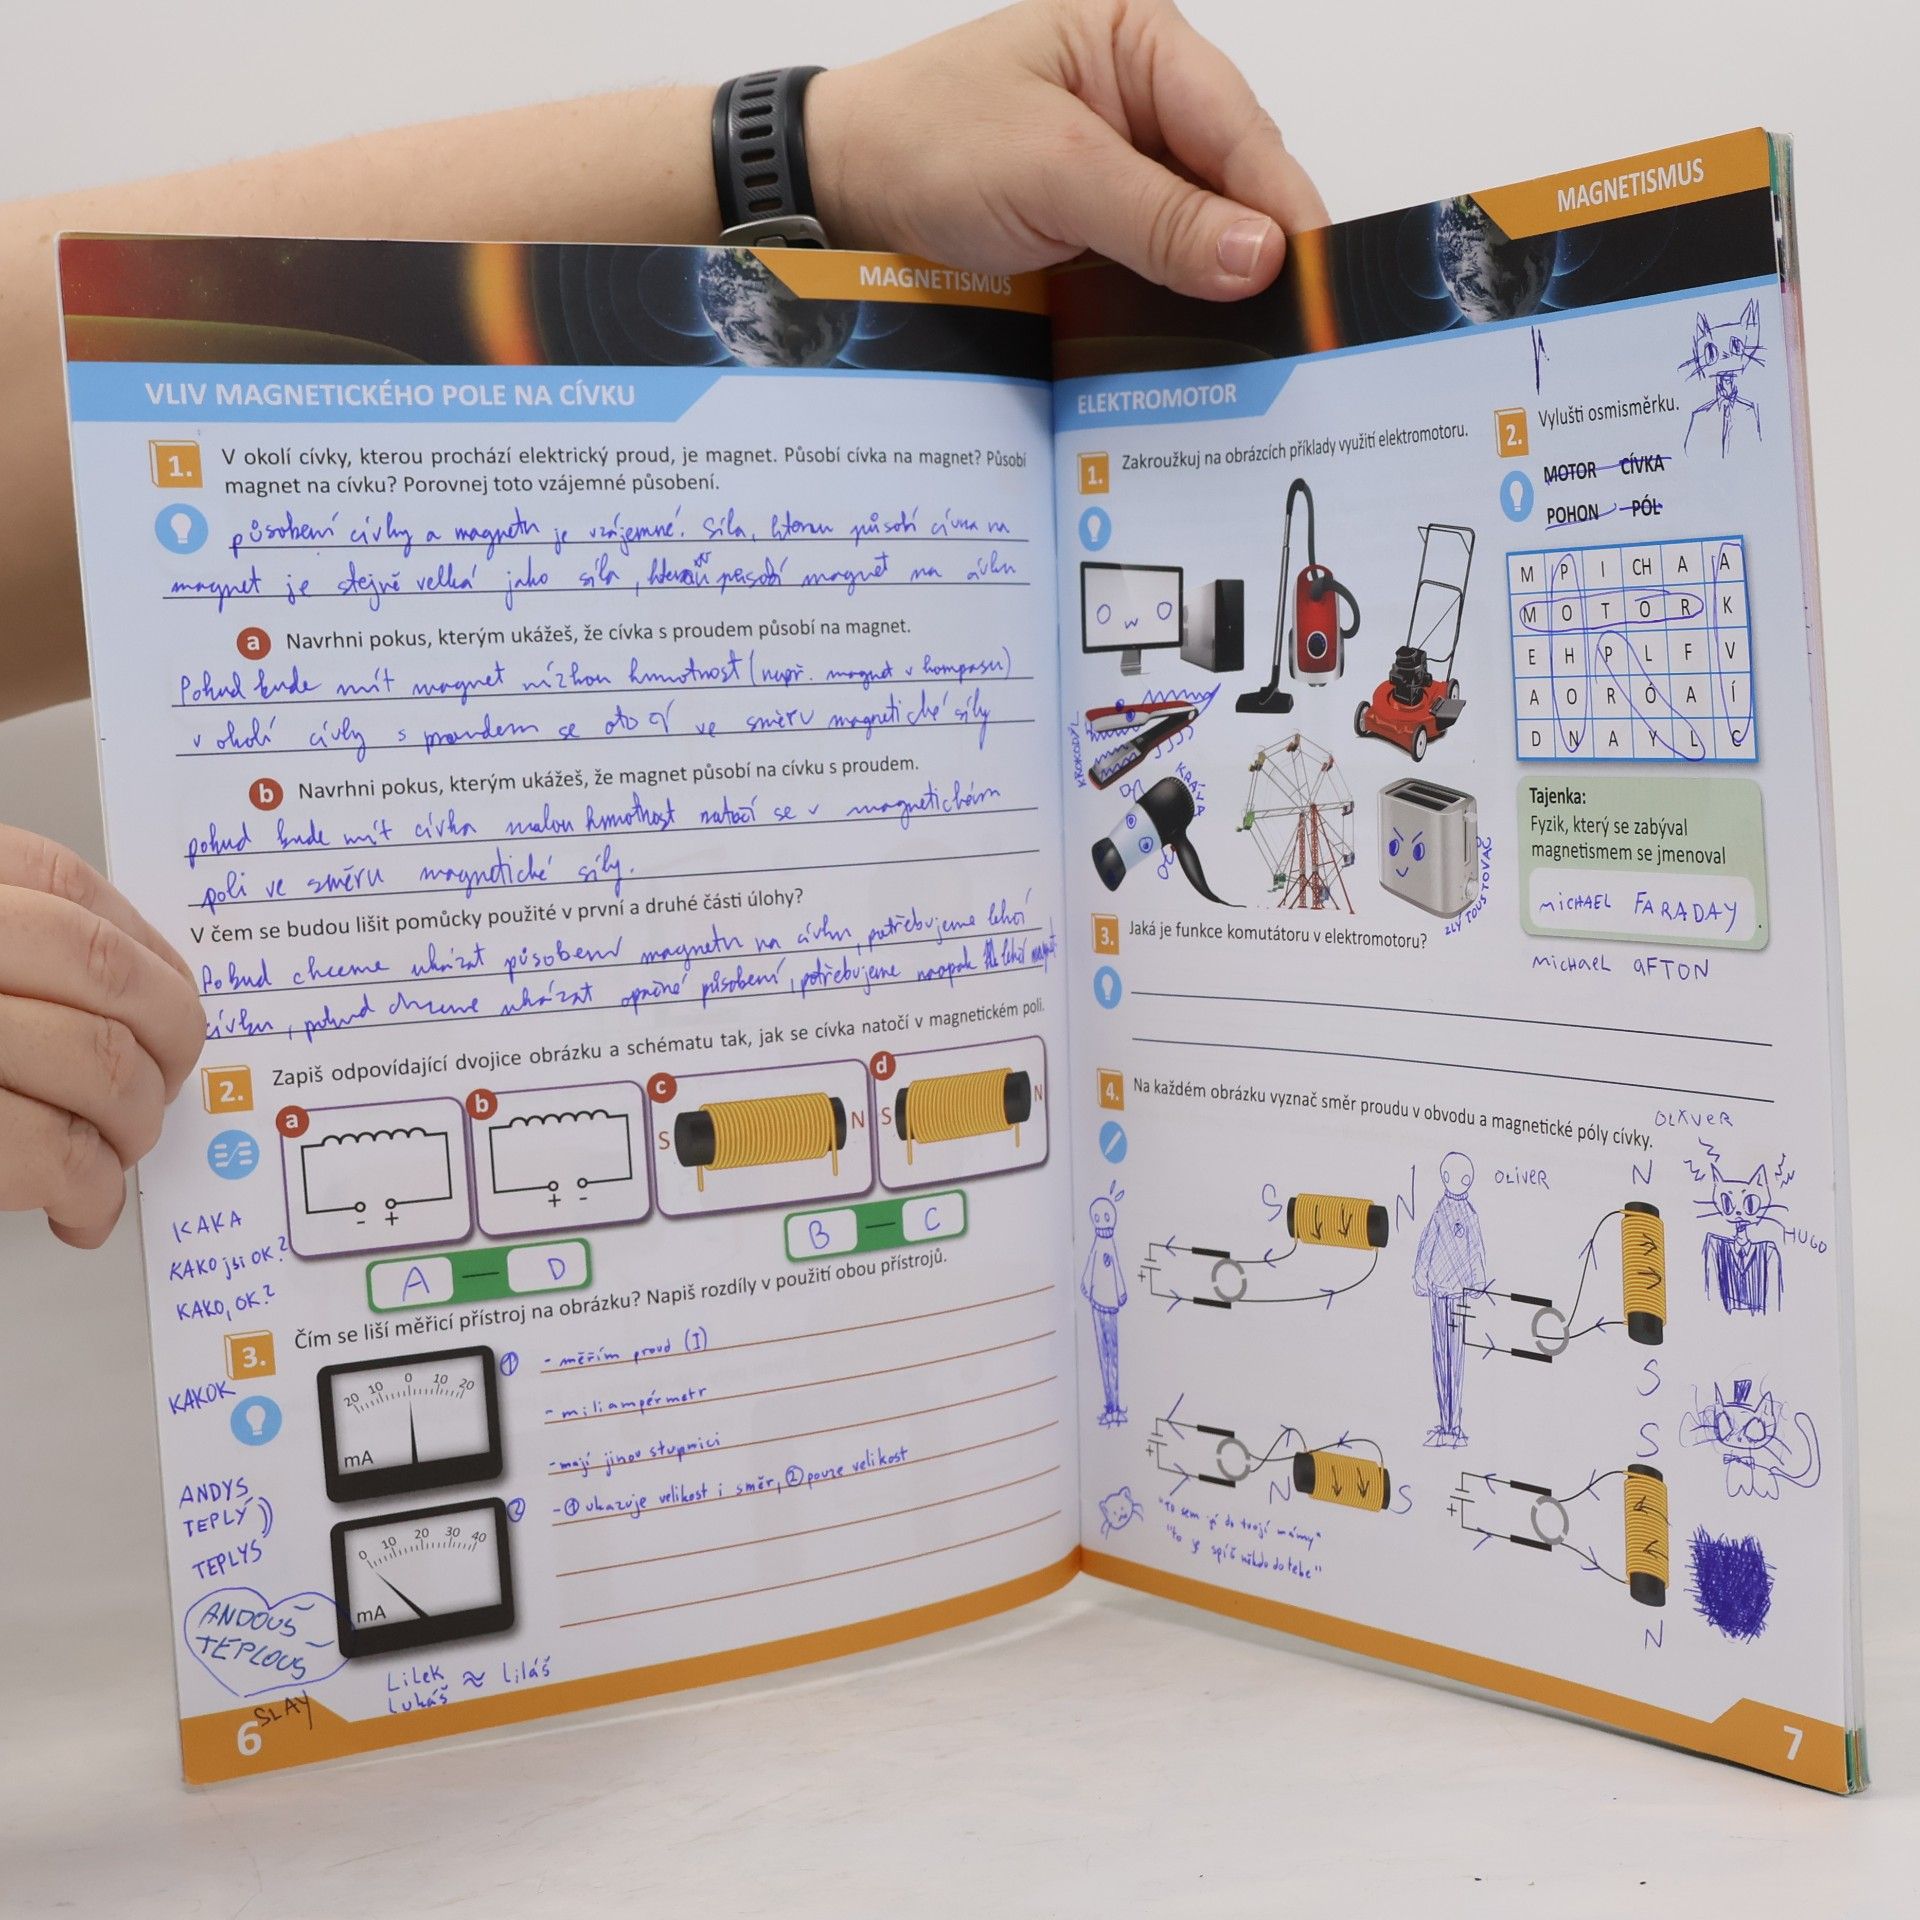 MAGNETISMUS
VLIV MAGNETICKÉHO POLE NA CÍVKU
1.
V okolí cívky, kterou prochází elektrický proud, je magnet. Působí cívka na magnet? Působí
magnet na cívku? Porovnej toto vzájemné působení.
působení cívky a magnetu je vzájemné. Síla, kterou působí cívka na
magnet je stejně velká jako síla, kterou působí magnet na cívku
a Navrhni pokus, kterým ukážeš, že cívka s proudem působí na magnet.
Pokud bude mít magnet nízkou hmotnost (např. magnet v kompasu)
v okolí cívky s proudem se otočí ve směru magnetické síly
b Navrhni pokus, kterým ukážeš, že magnet působí na cívku s proudem.
pokud bude mít cívka malou hmotnost natočí se v magnetickém
poli ve směru magnetické síly.
V čem se budou lišit pomůcky použité v první a druhé části úlohy?
Pokud chceme ukázat působení magnetu na cívku, potřebujeme lehčí
cívku, pokud chceme ukázat opačné působení, potřebujeme naopak lehčí magnet
2.
Zapiš odpovídající dvojice obrázku a schématu tak, jak se cívka natočí v magnetickém poli.
a
b
c
d
S
N
S
N
- +
+ -
A — D
B — C
KAKA
KAKO jsi OK?
KAKO, OK?
3.
Čím se liší měřicí přístroj na obrázku? Napiš rozdíly v použití obou přístrojů.
KAKOK
20 10 0 10 20
mA
1
- měřím proud (I)
- miliampérmetr
- mají jinou stupnici
- 1 ukazuje velikost i směr, 2 pouze velikost
2
0 10 20 30 40
mA
ANDYS
TEPLÝ))
TEPLYS
ANDOUŠ
TEPLOUŠ
SLAY
Lilek
Lukáš ≈ Liláš
6
MAGNETISMUS
ELEKTROMOTOR
1.
Zakroužkuj na obrázcích příklady využití elektromotoru.
O w O
KROKODÝL
KRÁVA
ZLÝ TOUSTOVAČ
2.
Vylušti osmisměrku.
MOTOR CÍVKA
POHON PÓL
M P I CH A A
M O T O R K
E H P L F V
A O R Ó A Í
D N A Y L C
Tajenka:
Fyzik, který se zabýval
magnetismem se jmenoval
MICHAEL FARADAY
MICHAEL AFTON
3.
Jaká je funkce komutátoru v elektromotoru?
4.
Na každém obrázku vyznač směr proudu v obvodu a magnetické póly cívky.
OLIVER
S
N
OLIVER
N
HUGO
+
+
S
S
+
N
S
+
N
"to sem já do tvojí mámy"
"to je spíš někdo do tebe"
7